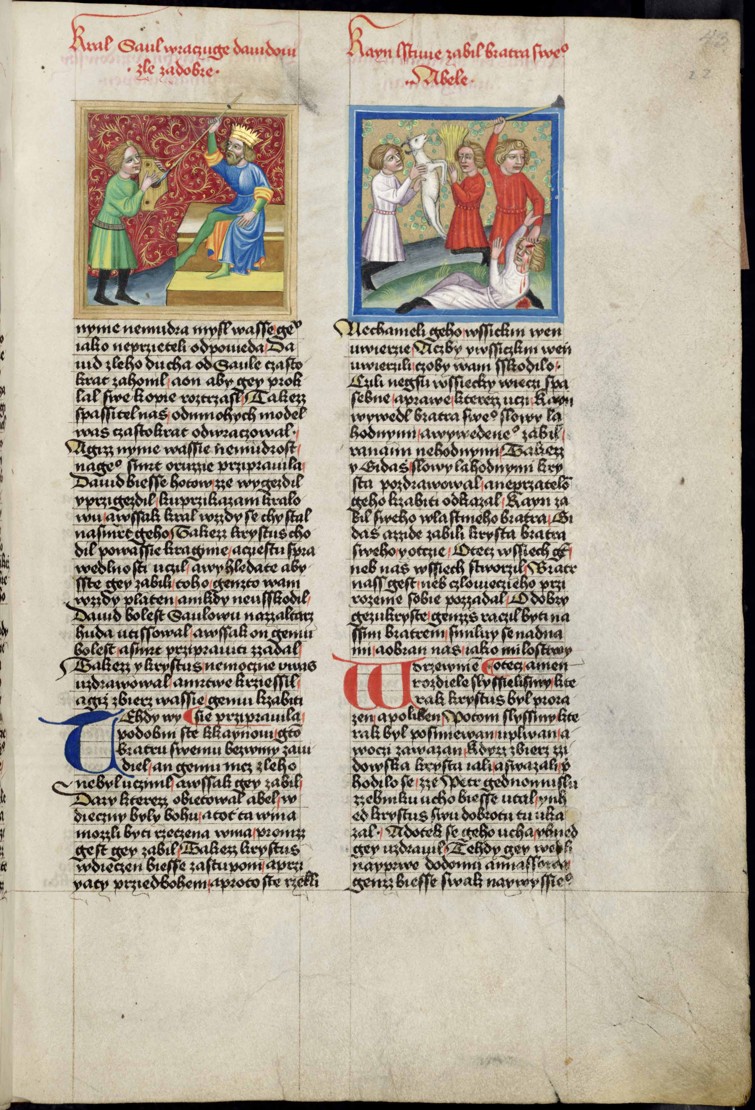 Kral Saul wraczuge dauidowi
zle zadobre
nyme nemudra mysl wasse
iako neprzieteli odpowieda Da
uid zleho ducha od Saule czasto
krat zahonil aon aby gey prok
lal swe kopie roztrzasl Takezz
spassitel nas odmnohych model
was czastokrat odwraczowal
Agizz nyme wassie nemudrost
geho smrt oruzie przyprauila
Dauid biesse hotow zze wygezdil
yprzigezdil kuprzikazani kralo
wu awssak kral wzzdy se chystal
nasmrt geho Takezz krystus cho
dil powassie kragine aczestu spra
wedlnosti uczil awyhledate aby
sste gey zabili toho genzto wam
wzzdy platen anikdy neusskodil
Dauid bolest Saulowu nazzaltarz
huda utissowal awssak on gemu
bolest asmrt przyprauiti zzadal
Takezz y krystus nemoczne
uzdrawowal amrtwe krziessil
agizz zbierz wassie gemu kzabiti
Tehdy wy sie przyprauila
podobni ste kkaynowi
bratru swemu bezwiny zawi
diel an gemu nicz zleho
nebyl uczinil awssak gey zabil
Dary kterezz obietowal abel w
dieczny byly bohu atot ta wina
mozzli byti rzeczena wina pronizz
gest gey zabil Takezz krystus
wdieczen biesse zastupom aprzi
yaty prziedbohem aproto ste rzekli
Kayn lstiwe zabil bratra sweo
Abele
Nechameli geho wssickni wen
uwierzie Aczby ywssiczkni wen
uwierzili czoby wam sskodilo
Czuli negsu wssiecky wieczi spa
sebne aprawe kterezz uczi Kayn
wywedl bratra sweo slowy la
hodnymi awywedeneo zabil
ranami nehodnymi Takezz
y Gidas slowy lahodnymi kry
sta pozdrawowal aneprzatelo
geho kzabiti odkazal Kayn za
bil sweho wlastnieho bratra Gi
das azzide zabili krysta bratra
sweho yotcze Otecz wssiech
neb nas wssiech stworzil Bratr
nass gest neb czlowieczieho przi
rozenie sobie pozzadal O dobry
gezukryste genzzs raczil byti na
ssim bratrem smiluy se nadna
mi aobran nas iako milostiwy
otecz amen
Wdrzewnie
rozdiele slyssielismy kte
rak krystus byl proda
zen apoliben Potom slyssimy kte
rak byl posmiewan uplwan a
woczi zawazan Kdyzz zbierz zzi
dowska krysta iali aswazali p
hodilo se zze Petr gednomu slu
zzebniku ucho biesse utal yuh
ed krystus swu dobrotu tu uka
zal Adotek se geho ucha yhned
gey uzdrauil Tehdy gey wedli
nayprwe dodomu
genzz biesse swak naywyssieo